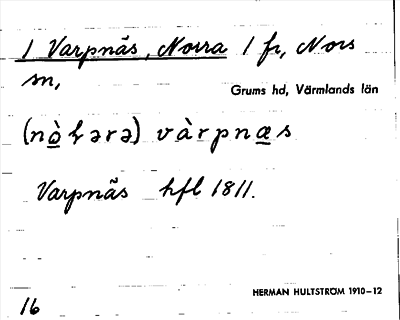 1 Varpnäs, Norra 1 fr, Nors
sn,
Grums hd, Värmlands län
vàrpnæs
Varpnäs hfl 1811.
HERMAN HULTSTRÖM 1910–12
16